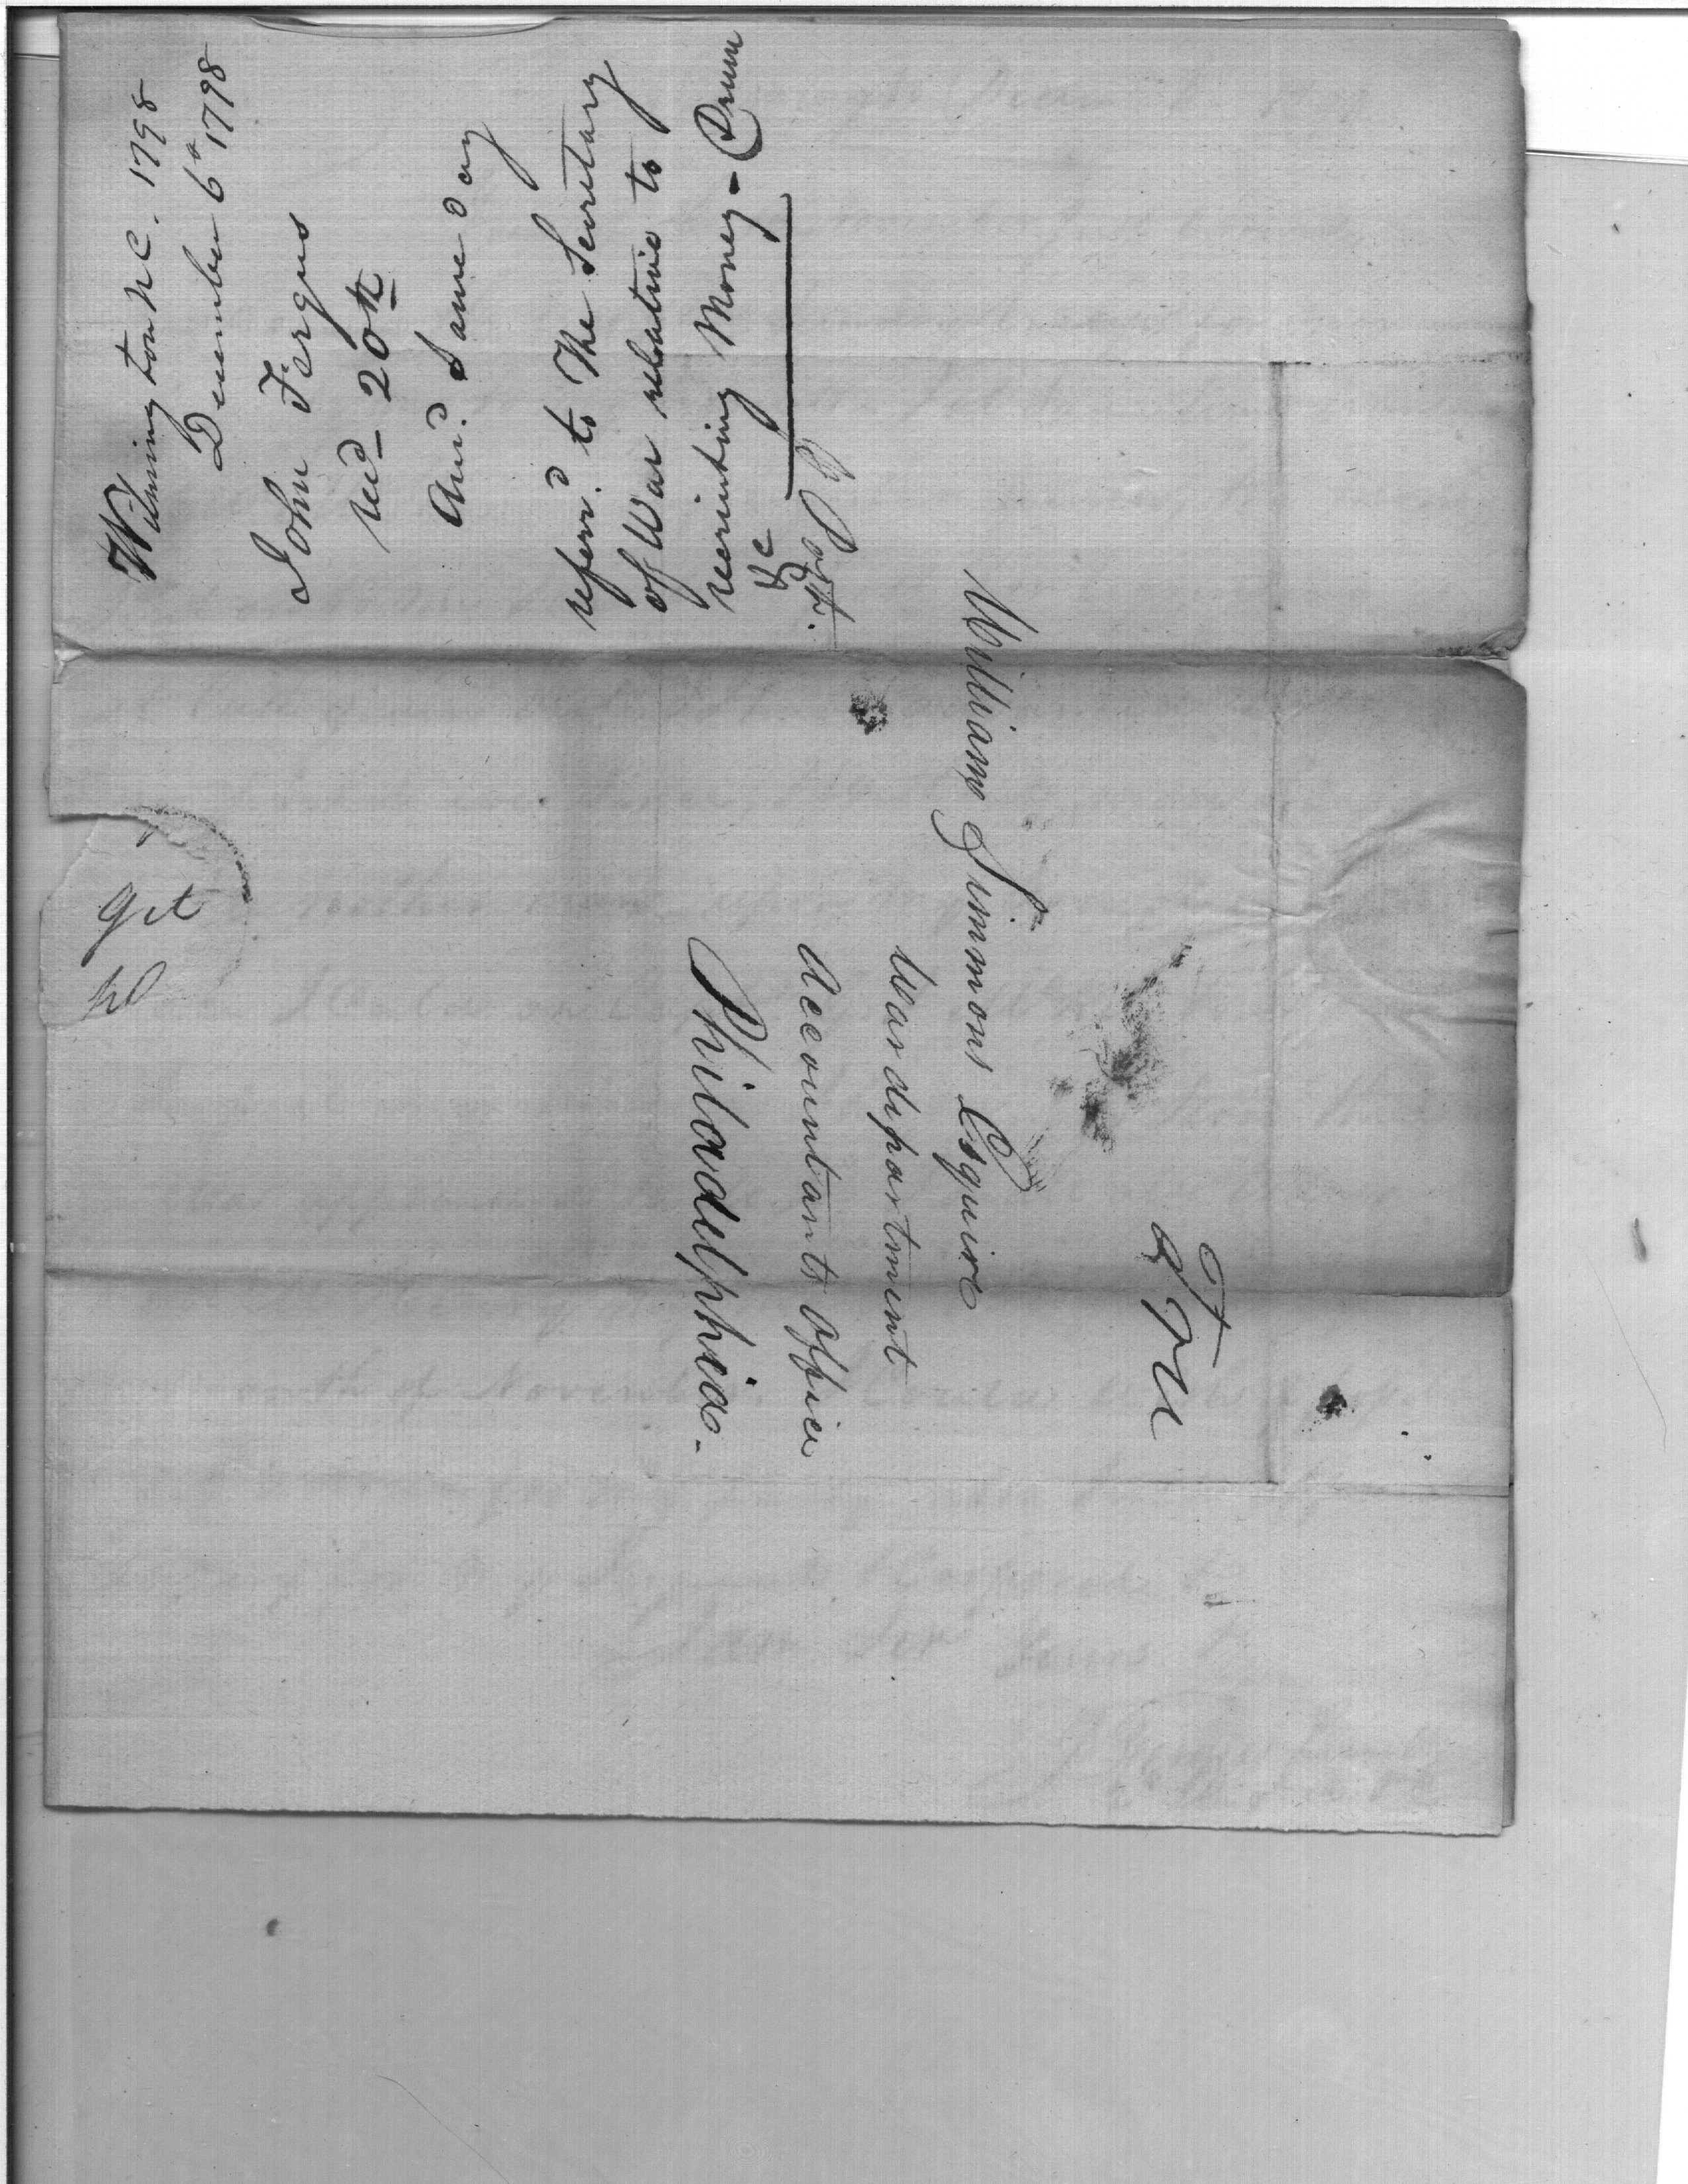 Wilmington N C. 1798
December 6th 1798
John Fergus
recd 20th
Ansd. Same day
referrd. to The Secretary
of War relative to
recruiting Money -
&c
Free
William Simmons Esquire
War department
Accountants office
Philadelphia -
get